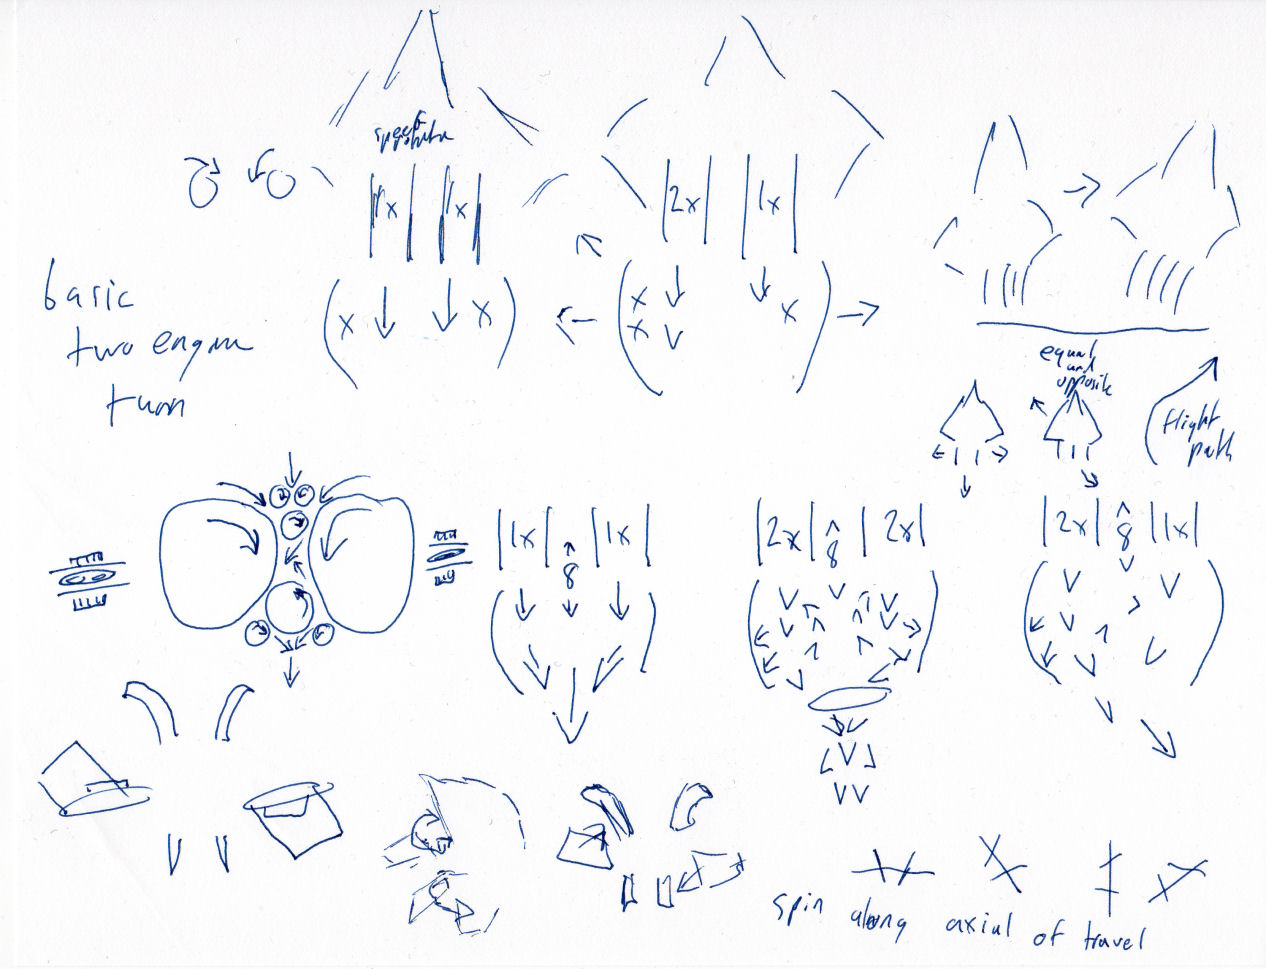 speed
1x 1x
2x 1x
x x
x x
x
basic
two engine
turn
equal
and
opposite
flight
path
1x 8 1x
2x 8 2x
2x 8 1x
spin along axial of travel